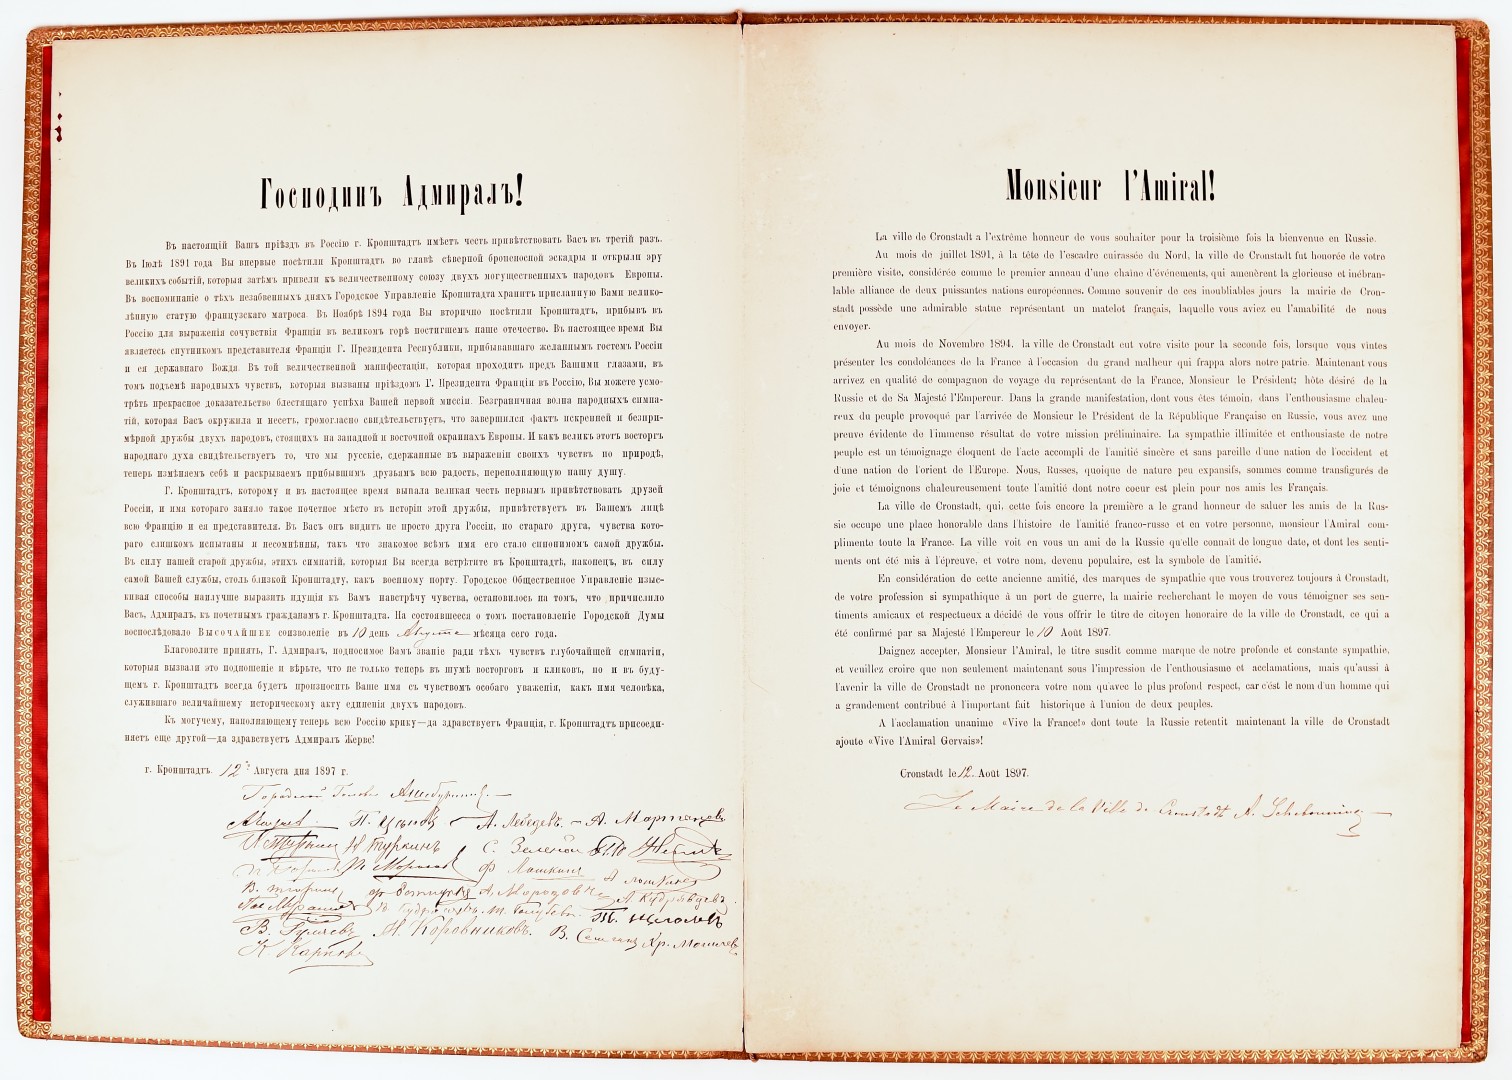 Господинъ Адмиралъ!
Въ настоящій Вашъ пріѣздъ въ Россію г. Кронштадтъ имѣетъ честь привѣтствовать Васъ въ третій разъ.
Въ Іюлѣ 1891 года Вы впервые посѣтили Кронштадтъ во главѣ сѣверной броненосной эскадры и открыли эру
великихъ событій, которыя затѣмъ привели къ величественному союзу двухъ могущественныхъ народовъ Европы.
Въ воспоминаніе о тѣхъ незабвенныхъ дняхъ Городское Управленіе Кронштадта хранитъ присланную Вами велико-
лѣпную статую французскаго матроса. Въ Ноябрѣ 1894 года Вы вторично посѣтили Кронштадтъ, прибывъ въ
Россію для выраженія сочувствія Франціи въ великомъ горѣ постигшемъ наше отечество. Въ настоящее время Вы
являетесь спутникомъ представителя Франціи Г. Президента Республики, прибывшаго желаннымъ гостемъ Россіи
и ея державнаго Вождя. Въ той величественной манифестаціи, которая проходитъ предъ Вашими глазами, въ
томъ подъемѣ народныхъ чувствъ, которыя вызваны пріѣздомъ Г. Президента Франціи въ Россію, Вы можете усмо-
трѣть прекрасное доказательство блестящаго успѣха Вашей первой миссіи. Безграничная волна народныхъ симпа-
тій, которая Васъ окружила и несетъ, громогласно свидѣтельствуетъ, что завершился фактъ искренней и безпри-
мѣрной дружбы двухъ народовъ, стоящихъ на западной и восточной окраинахъ Европы. И какъ великъ этотъ восторгъ
народнаго духа свидѣтельствуетъ то, что мы русскіе, сдержанные въ выраженіи своихъ чувствъ по природѣ,
теперь измѣняемъ себѣ и раскрываемъ прибывшимъ друзьямъ всю радость, переполняющую нашу душу.
Г. Кронштадтъ, которому и въ настоящее время выпала великая честь первымъ привѣтствовать друзей
Россіи, и имя котораго заняло такое почетное мѣсто въ исторіи этой дружбы, привѣтствуетъ въ Вашемъ лицѣ
всю Францію и ея представителя. Въ Васъ онъ видитъ не просто друга Россіи, но стараго друга, чувства кото-
раго слишкомъ испытаны и несомнѣнны, такъ что знакомое всѣмъ имя его стало синонимомъ самой дружбы.
Въ силу нашей старой дружбы, этихъ симпатій, которыя Вы всегда встрѣтите въ Кронштадтѣ, наконецъ, въ силу
самой Вашей службы, столь близкой Кронштадту, какъ военному порту, Городское Общественное Управленіе изыс-
кивая способы наилучше выразить идущія къ Вамъ навстрѣчу чувства, остановилось на томъ, что причислило
Васъ, Адмиралъ, къ почетнымъ гражданамъ г. Кронштадта. На состоявшееся о томъ постановленіе Городской Думы
воспослѣдовало Высочайшее соизволеніе въ 10 день Августа мѣсяца сего года.
Благоволите принять, Г. Адмиралъ, подносимое Вамъ званіе ради тѣхъ чувствъ глубочайшей симпатіи,
которыя вызвали это подношеніе и вѣрьте, что не только теперь въ шумѣ восторговъ и кликовъ, но и въ буду-
щемъ г. Кронштадтъ всегда будетъ произносить Ваше имя съ чувствомъ особаго уваженія, какъ имя человѣка,
служившаго величайшему историческому акту единенія двухъ народовъ.
Къ могучему, наполняющему теперь всю Россію крику—да здравствуетъ Франція, г. Кронштадтъ присоеди-
няетъ еще другой—да здравствуетъ Адмиралъ Жерве!
г. Кронштадтъ. 12 Августа дня 1897 г.
Городской Голова
А. Лебедевъ. А. Мартыновъ
Н Туркинъ С. Зеленой
Ф Лошкинъ
А. Кудрявцевъ
Н. Коровниковъ.
Monsieur l'Amiral!
La ville de Cronstadt a l'extrême honneur de vous souhaiter pour la troisième fois la bienvenue en Russie.
Au mois de juillet 1891, à la tête de l'escadre cuirassée du Nord, la ville de Cronstadt fut honorée de votre
première visite, considérée comme le premier anneau d'une chaîne d'événements, qui amenèrent la glorieuse et inébran-
lable alliance de deux puissantes nations européennes. Comme souvenir de ces inoubliables jours la mairie de Cron-
stadt possède une admirable statue représentant un matelot français, laquelle vous aviez eu l'amabilité de nous
envoyer.
Au mois de Novembre 1894, la ville de Cronstadt eut votre visite pour la seconde fois, lorsque vous vintes
présenter les condoléances de la France à l'occasion du grand malheur qui frappa alors notre patrie. Maintenant vous
arrivez en qualité de compagnon de voyage du représentant de la France, Monsieur le Président; hôte désiré de la
Russie et de Sa Majesté l'Empereur. Dans la grande manifestation, dont vous êtes témoin, dans l'enthousiasme chaleu-
reux du peuple provoqué par l'arrivée de Monsieur le Président de la République Française en Russie, vous avez une
preuve évidente de l'immense résultat de votre mission préliminaire. La sympathie illimitée et enthousiaste de notre
peuple est un témoignage éloquent de l'acte accompli de l'amitié sincère et sans pareille d'une nation de l'occident et
d'une nation de l'orient de l'Europe. Nous, Russes, quoique de nature peu expansifs, sommes comme transfigurés de
joie et témoignons chaleureusement toute l'amitié dont notre coeur est plein pour nos amis les Français.
La ville de Cronstadt, qui, cette fois encore la première a le grand honneur de saluer les amis de la Rus-
sie occupe une place honorable dans l'histoire de l'amitié franco-russe et en votre personne, monsieur l'Amiral com-
plimente toute la France. La ville voit en vous un ami de la Russie qu'elle connaît de longue date, et dont les senti-
ments ont été mis à l'épreuve, et votre nom, devenu populaire, est la symbole de l'amitié.
En considération de cette ancienne amitié, des marques de sympathie que vous trouverez toujours à Cronstadt,
de votre profession si sympathique à un port de guerre, la mairie recherchant le moyen de vous témoigner ses sen-
timents amicaux et respectueux a décidé de vous offrir le titre de citoyen honoraire de la ville de Cronstadt, ce qui a
été confirmé par sa Majesté l'Empereur le 10 Août 1897.
Daignez accepter, Monsieur l'Amiral, le titre susdit comme marque de notre profonde et constante sympathie,
et veuillez croire que non seulement maintenant sous l'impression de l'enthousiasme et acclamations, mais qu'aussi à
l'avenir la ville de Cronstadt ne prononcera votre nom qu'avec le plus profond respect, car c'ést le nom d'un homme qui
a grandement contribué à l'important fait historique à l'union de deux peuples.
A l'acclamation unanime «Vive la France!» dont toute la Russie retentit maintenant la ville de Cronstadt
ajoute «Vive l'Amiral Gervais»!
Cronstadt le 12 Août 1897.
Le Maire de la Ville de Cronstadt A.